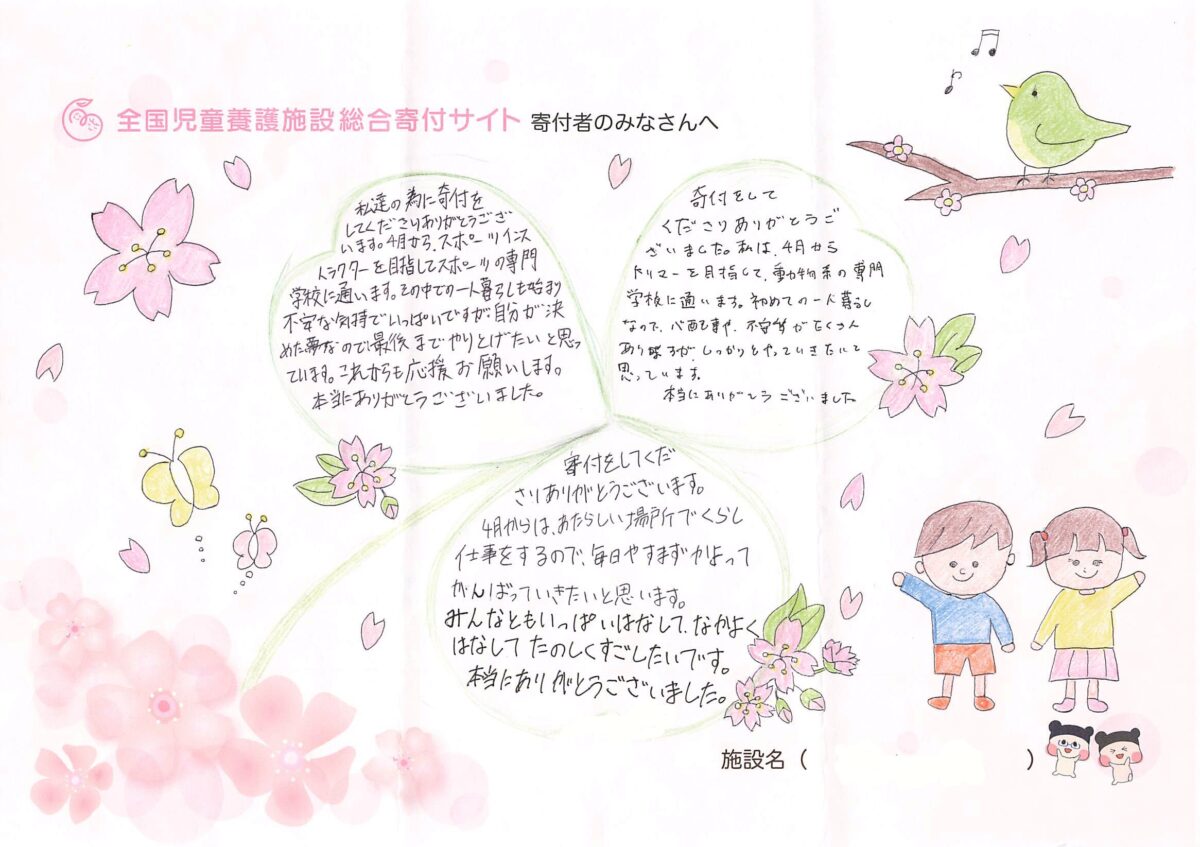 全国児童養護施設総合寄付サイト 寄付者のみなさんへ
私達の為に寄付を
してくださりありがとうござ
います。4月から、スポーツインス
トラクターを目指してスポーツの専門
学校に通います。その中での一人暮らしも始まり
不安な気持でいっぱいですが自分が決
めた夢なので最後までやりとげたいと思っ
ています。これからも応援お願いします。
本当にありがとうございました。
寄付をして
くださりありがとうご
ざいました。私は、4月から
トリマーを目指して、動物系の専門
学校に通います。初めての一人暮らし
なので、心配事や、不安等がたくさん
ありますが、しっかりとやっていきたいと
思っています。
本当にありがとうございました。
寄付をしてくだ
さりありがとうございます。
4月からは、あたらしい場所でくらし
仕事をするので、毎日やすまずかよって
がんばっていきたいと思います。
みんなともいっぱいはなして、なかよく
はなしてたのしくすごしたいです。
本当にありがとうございました。
施設名（ ）